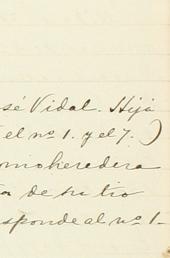 sé Vidal. Hija
el nº 1. y el 7.)
omo heredera
a de su tio
sponde al nº 1.-